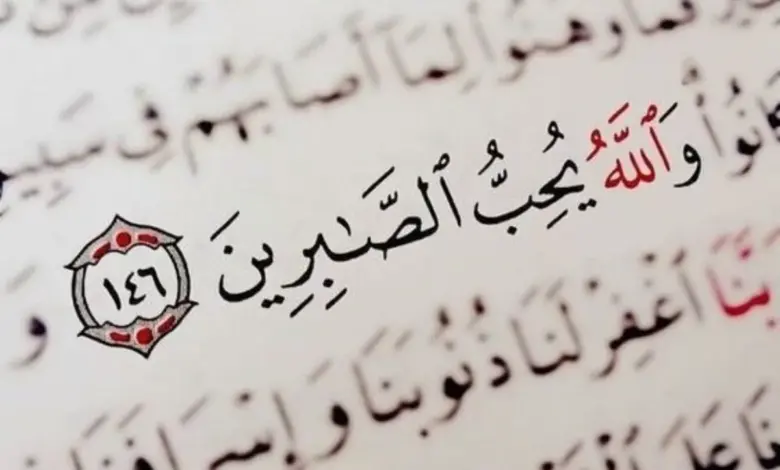 فَمَا وَهَنُوا۟ لِمَآ أَصَابَهُمْ فِى سَبِيلِ
وَٱللَّهُ يُحِبُّ ٱلصَّٰبِرِينَ ١٤٦ وَ
ٱغْفِرْ لَنَا ذُنُوبَنَا وَإِسْرَافَنَا